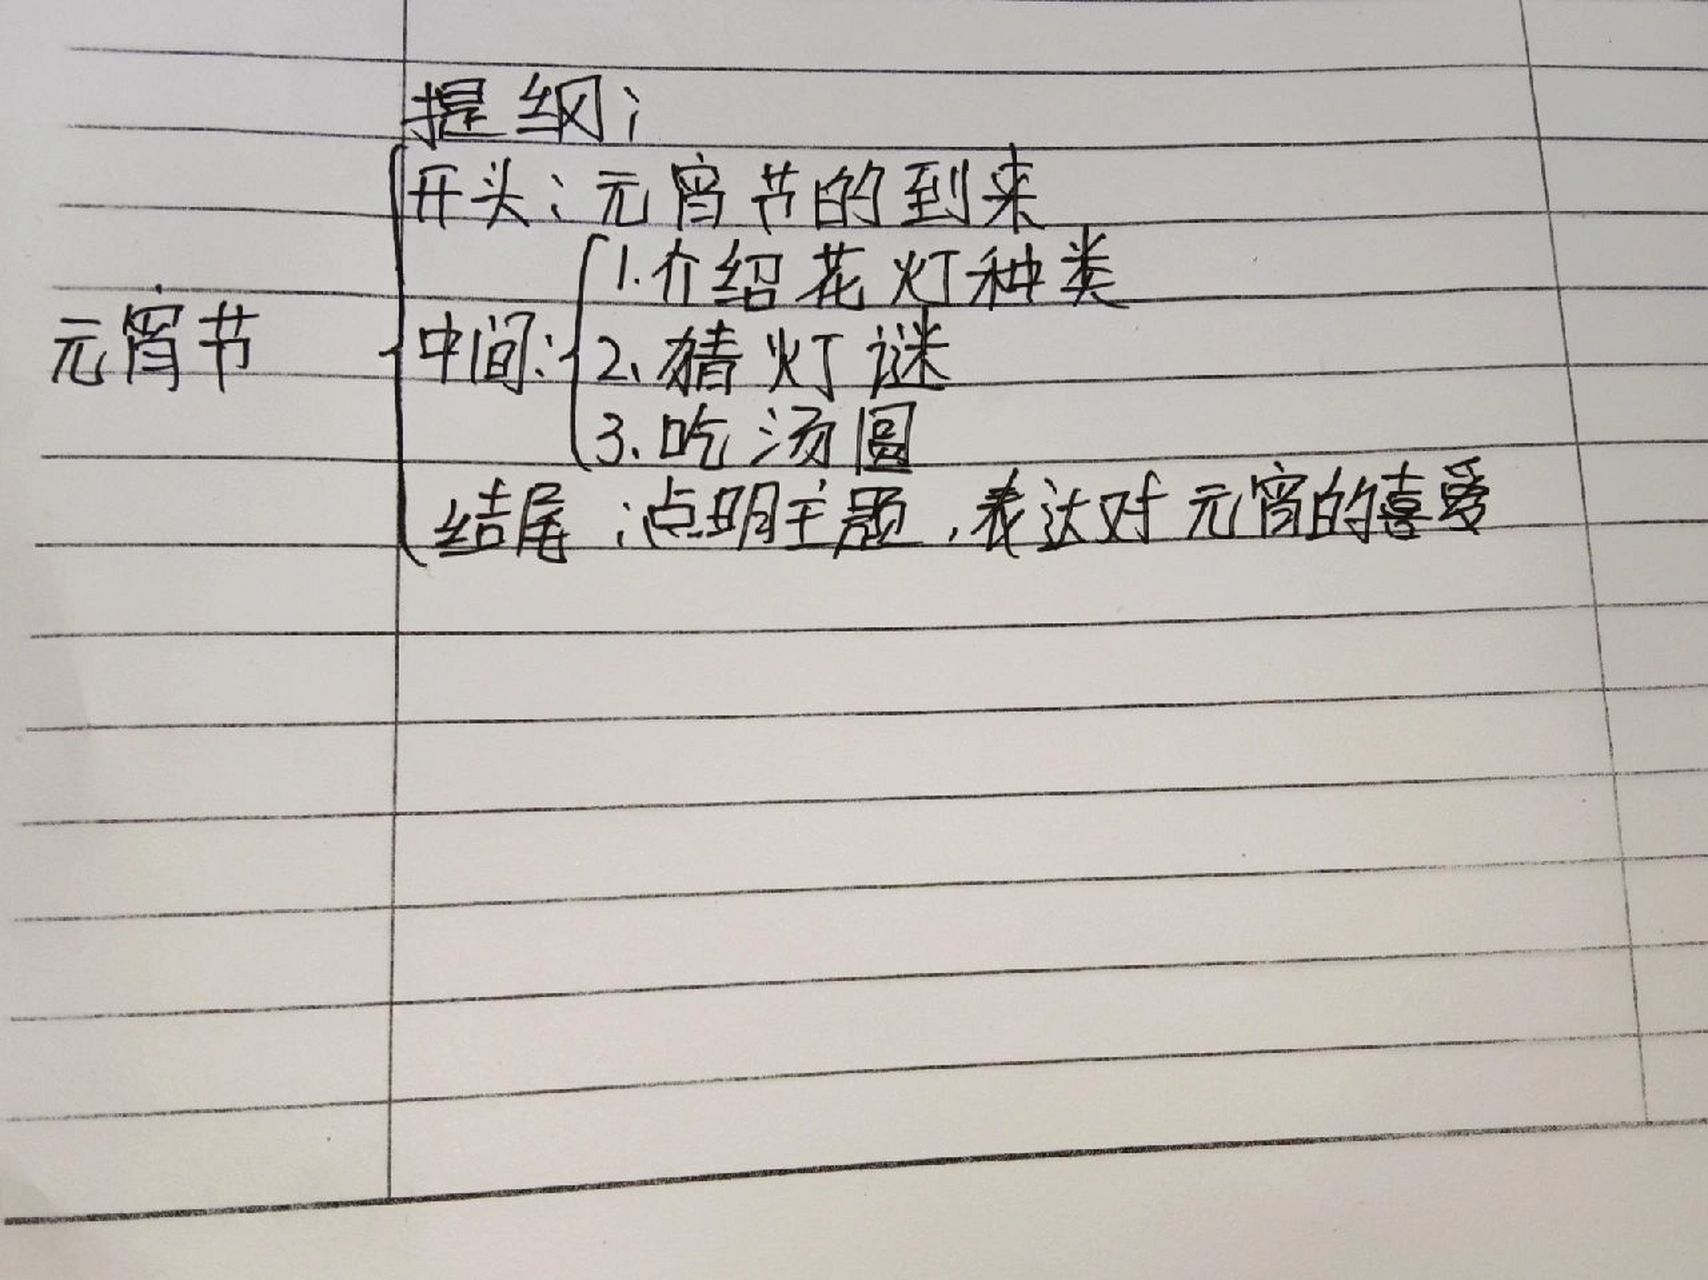 提纲:
开头:元宵节的到来
1.介绍花灯种类
元宵节 中间: 2、猜灯谜
3.吃汤圆
结尾:点明主题,表达对元宵的喜爱